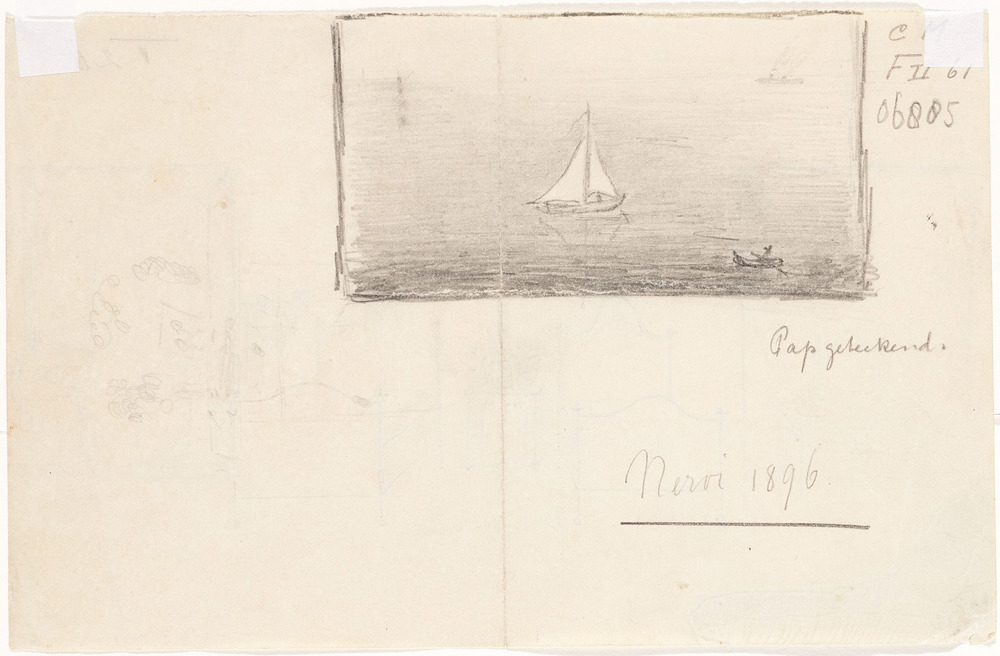 C M
F II 61
06805
Pap geteekend.
Nervi 1896.